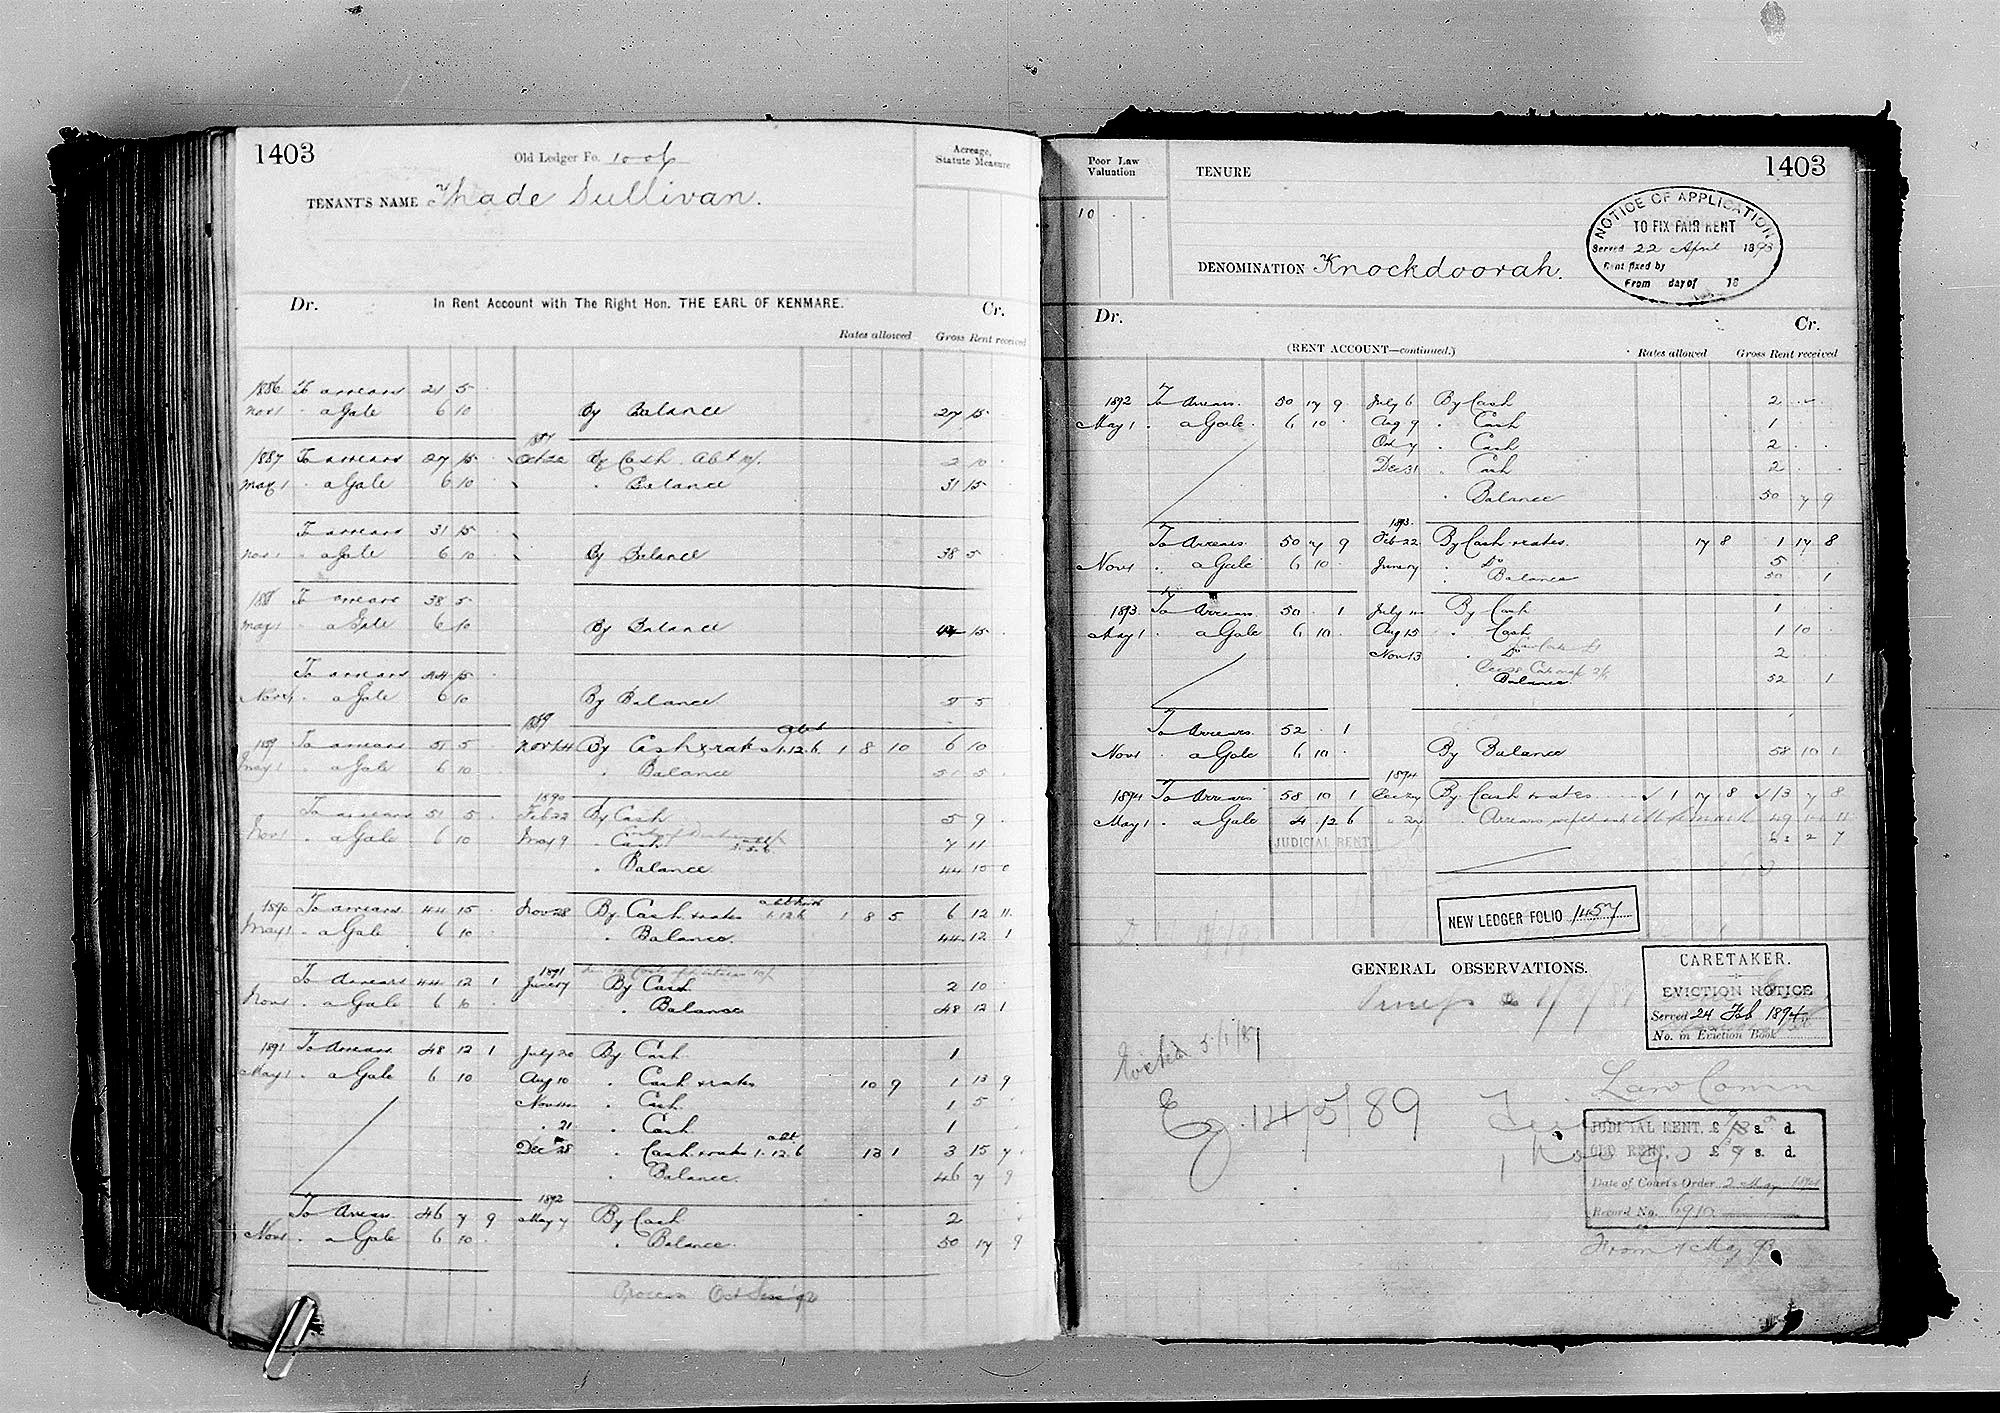 1403
Old Ledger Fo. 1006
Acreage, Statute Measure
TENANT'S NAME Thade Sullivan.
Dr. In Rent Account with The Right Hon. THE EARL OF KENMARE. Cr.
Rates allowed Gross Rent received
1886 To arrears 21 5
Nov 1 " a Gale 6 10 By Balance 27 15
1887
1887 To arrears 27 15 Oct 22 By Cash Abt 10/. 2 10
May 1 " a Gale 6 10 " Balance 31 15
To arrears 31 15
Nov 1 " a Gale 6 10 By Balance 38 5
1888 To arrears 38 5
May 1 " a Gale 6 10 By Balance 44 15
To arrears 44 15
Nov 1 " a Gale 6 10 By Balance 51 5
1889
1889 To arrears 51 5 Nov 14 By Cash & rates abt 1.12.6 1 8 10 6 10
May 1 " a Gale 6 10 " Balance 51 5
1890
To arrears 51 5 Feb 22 By Cash 5 9
Nov 1 " a Gale 6 10 May 9 " Cash 7 11
" Balance 44 15 0
1890 To arrears 44 15 Nov 28 By Cash & rates 1.12.6 1 8 5 6 12 11
May 1 " a Gale 6 10 " Balance. 44 12 1
1891
To Arrears 44 12 1 June 17 By Cash 2 10
Nov 1 " a Gale 6 10 " Balance 48 12 1
1891 To Arrears 48 12 1 July 20 By Cash 1
May 1 " a Gale 6 10 Aug 10 " Cash & rates 10 9 1 13 9
Nov " Cash 1 5
" 21 " Cash 1
Dec 28 " Cash & rates abt 1.12.6 13 1 3 15 7
" Balance. 46 7 9
1892
To Arrears 46 7 9 May 7 By Cash 2
Nov 1 " a Gale 6 10 " Balance. 50 17 9
Process Oct Sess '92
Poor Law Valuation
TENURE
1403
10
NOTICE OF APPLICATION
TO FIX FAIR RENT
Served 22 April 1893
Rent fixed by
From day of 18
DENOMINATION Knockdoorah.
Dr. Cr.
(RENT ACCOUNT—continued.)
Rates allowed Gross Rent received
1892 To Arrears 50 17 9 July 6 By Cash 2
May 1 " a Gale 6 10 Aug 9 " Cash 1
Oct 4 " Cash 2
Dec 31 " Cash 2
" Balance 50 7 9
1893
To Arrears 50 7 9 Feb 22 By Cash & rates. 17 8 1 17 8
Nov 1 " a Gale 6 10 June 17 " Do 5
" Balance 50 1
1893 To Arrears 50 1 July By Cash 1
May 1 " a Gale 6 10 Aug 15 " Cash 1 10
Nov 13 " Do 2
Balance. 52 1
To Arrears 52 1
Nov 1 " a Gale 6 10 By Balance 58 10 1
1894
1894 To Arrears 58 10 1 Dec 24 By Cash & rates 1 17 8 13 7 8
May 1 " a Gale 4 12 6
JUDICIAL RENT
NEW LEDGER FOLIO 1457
GENERAL OBSERVATIONS.
CARETAKER.
EVICTION NOTICE
Served 24 Feb 1894
No. in Eviction Book
Evicted 5/1/87
Ej. 14/5/89
Law Comm
JUDICIAL RENT, £ s. d.
OLD RENT, £ s. d.
Date of Court's Order 2 May 1894
Record No. 6910
From 1 May 93